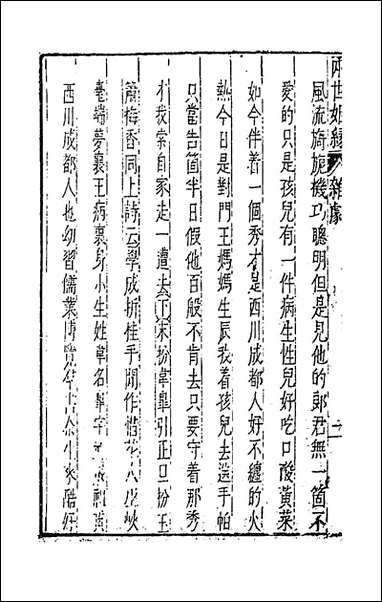 兩世姻緣 雜劇
風流旖旎機巧聰明但是見他的郎君無一箇不
愛的只是孩兒有一件病生性兒好吃口酸黃菜
如今伴着一個秀才是西川成都人好不纏的火
熱今日是對門王媽媽生辰我着孩兒去送手帕
只當告箇半日假他百般不肯去只要守着那秀
才我索自家走一遭去下末扮韋臯引正旦扮玉
簫梅香同上詩云學成折桂手閒作惜花人
毫端夢裏王病裏身小生姓韋名臯字武
西川成都人也幼習儒業博覽羣書